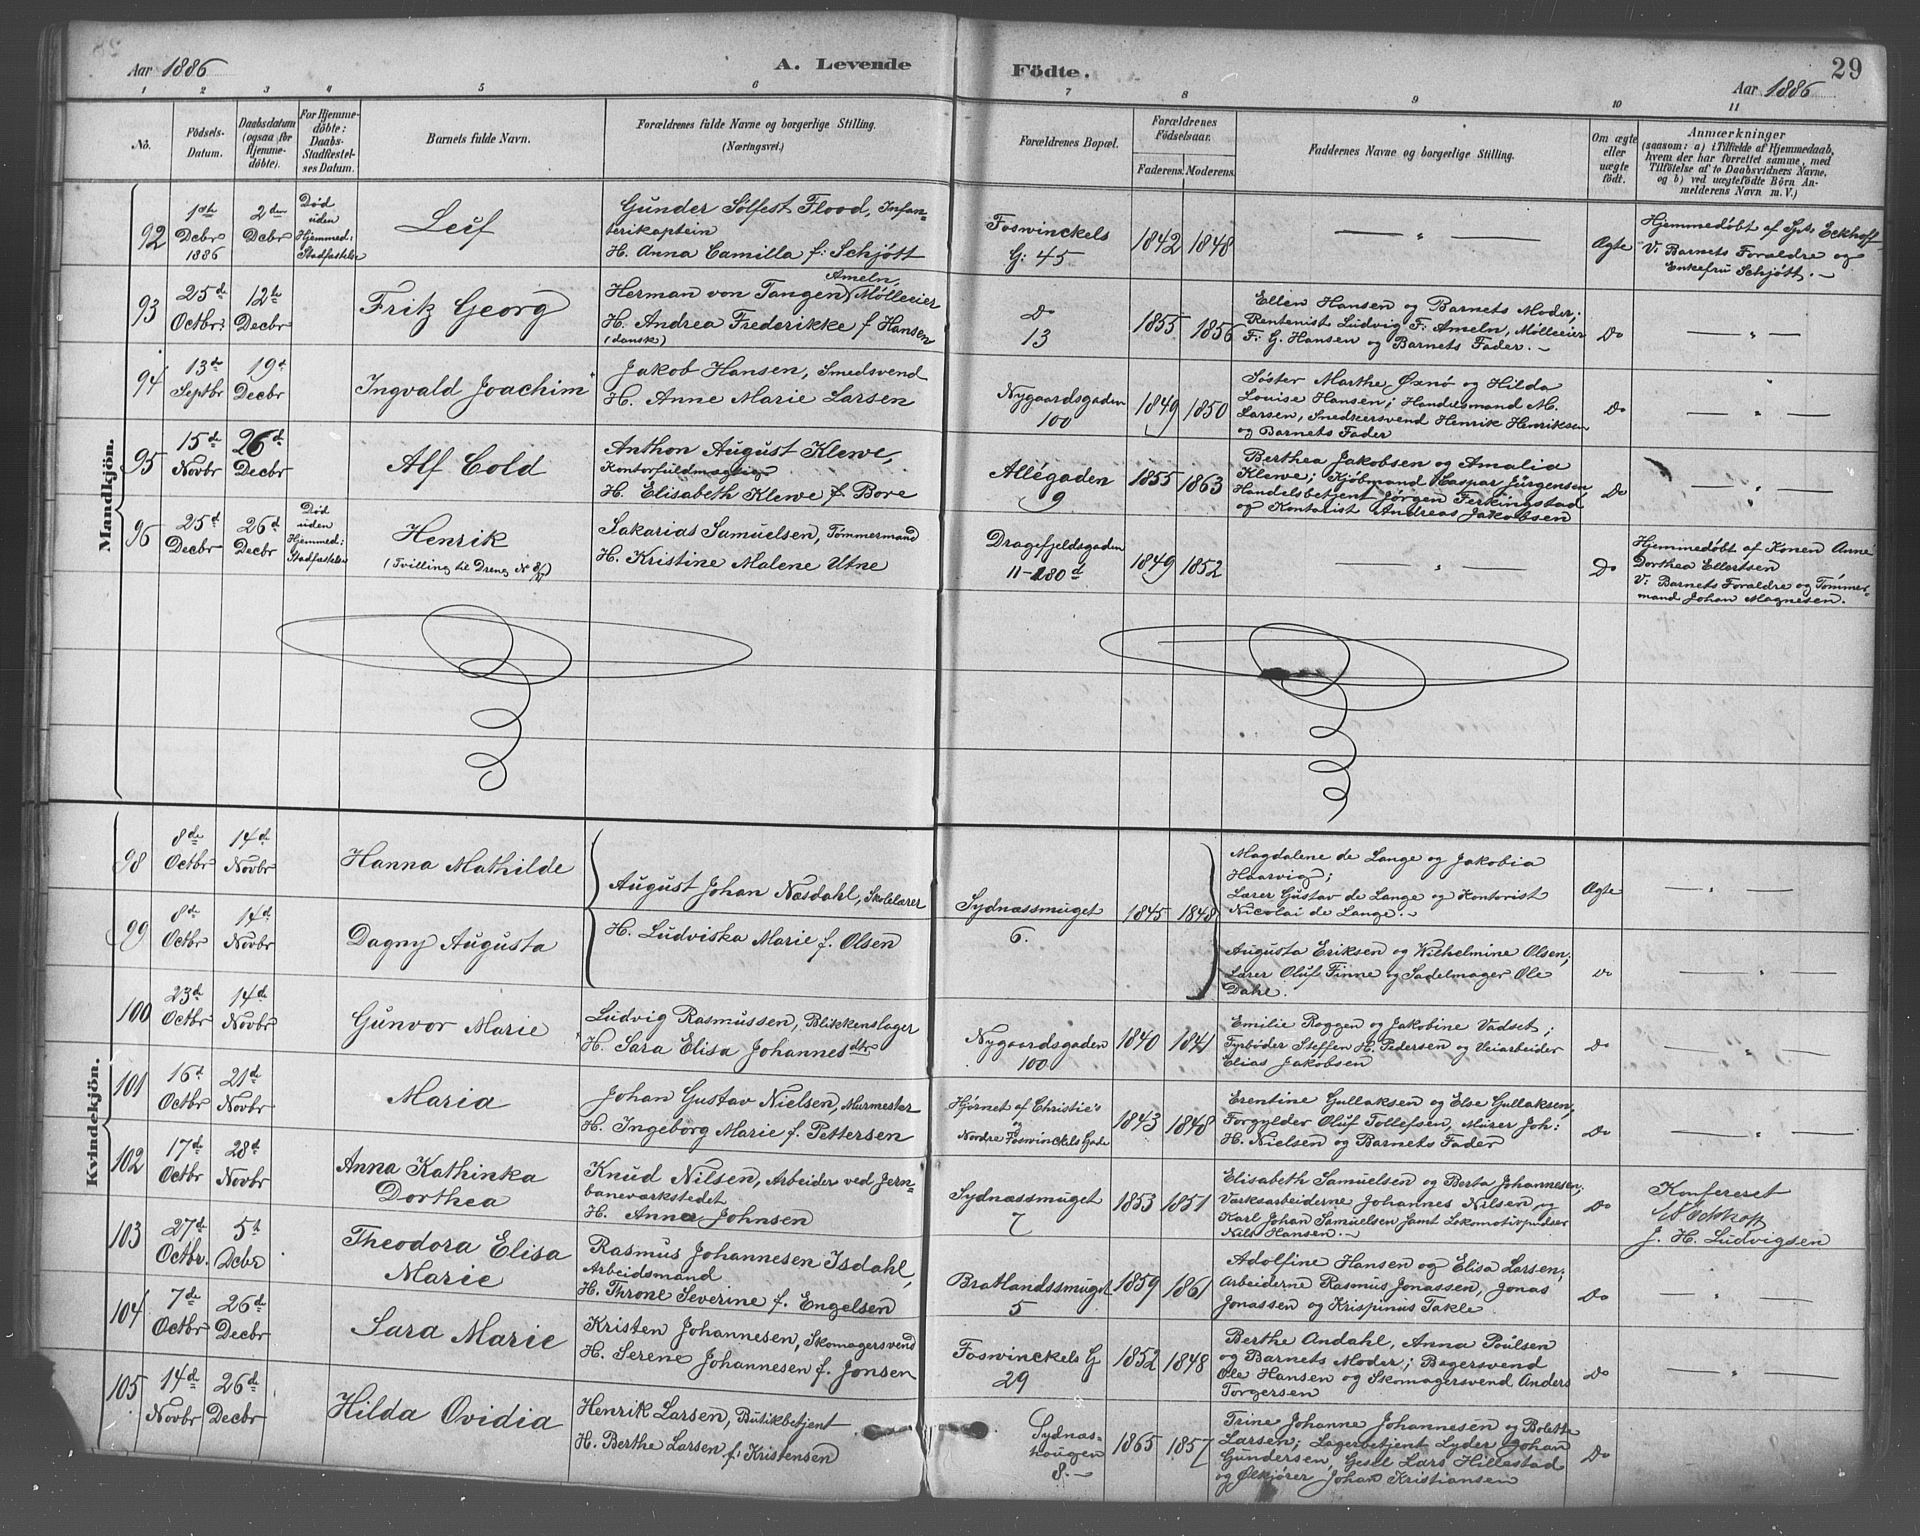 Aar 1886
A. Levende
Födte.
29
Aar 1886
1 2 3 4 5 6 7 8 9 10 11
No.
Födsels-
Datum.
Daabsdatum
(ogsaa for
Hjemme-
döbte).
For Hjemme-
döbte:
Daabs-
Stadfæstel-
ses Datum.
Barnets fulde Navn.
Forældrenes fulde Navne og borgerlige Stilling.
(Næringsvei.)
Forældrenes Bopæl.
Forældrenes
Födselsaar.
Faderens. Moderens.
Faddernes Navne og borgerlige Stilling.
Om ægte
eller
uægte
födt.
Anmærkninger
(saasom: a) i Tilfælde af Hjemmedaab,
hvem der har forrettet samme, med
Tilföielse af to Daabsvidners Navne,
og b) ved uægtefödte Börn An-
melderens Navn m. V.)
Mandkjön.
92
1ste
Decbr
1886
2den
Decbr
Död
uden
Hjemmed:
Stadfæstelse
Leif
Gunder Sølfest Flood, Infan-
terikaptein
H. Anna Camilla f: Schjøtt
Foswinckels
G: 45
1842 1848
— " —
Ægte
Hjemmedøbt af Spts Eckhoff
V: Barnets Forældre og
Enkefru Schjøtt. —
93
25de
Octbr:
12te
Decbr
Fritz Georg
Ameln,
Herman von Tangen Mølleeier
H. Andrea Frederikke f Hansen
(dansk)
Do
13
1855 1856
Ellen Hansen og Barnets Moder;
Rentenist Ludvig F: Ameln, Mølleeier
F: G. Hansen og Barnets Fader. —
Do
— " —
94
13de
Septbr
19de
Decbr
Ingvald Joachim
Jakob Hansen, Smedsvend
H. Anne Marie Larsen
Nygaardsgaden
100
1849 1850
Søster Marthe Øxnö og Hilda
Louise Hansen; Handelsmand M.
Larsen, Smedsvend Henrik Henriksen
og Barnets Fader
Do
— " —
95
15de
Novbr
26de
Decbr
Alf Cold
Anthon August Klewe,
Kontorfuldmægtig
H. Elisabeth Klewe f. Bore
Allégaden
9
1855 1863
Berthea Jakobsen og Amalia
Klewe; Kjöbmand Kaspar Jürgensen
Handelsbetjent Jörgen Ferkingstad
og Kontorist Andreas Jakobsen
Do
— " —
96
25de
Decbr
26de
Decbr
Död
uden
Hjemmed:
Stadfæstelse
Henrik
(Tvilling til Dreng No 8/87)
Sakarias Samuelsen, Tömmermand
H. Kristine Malene Utne
Dragefjeldsgaden
11-180d
1849 1852
— " —
Do
Hjemmedøbt af Konen Anne
Dorthea Ellertsen
V: Barnets Forældre og Tömmer-
mand Johan Magnesen.
Kvindekjön.
98
8de
Octbr
14de
Novbr
Hanna Mathilde
August Johan Næsdahl, Skolelærer
H. Ludviska Marie f. Olsen
Sydnæssmuget
6.
1845 1848
Magdalene de Lange og Jakobia
Haarvig;
Lærer Gustav de Lange og Kontorist
Nicolai de Lange. —
Ægte
— " —
99
8de
Octbr
14de
Novbr
Dagny Augusta
Augusta Eriksen og Wilhelmine Olsen;
Lærer Oluf Finne og Sadelmager Ole
Dahl.
Do
— " —
100
23de
Octbr
14de
Novbr
Gunvor Marie
Ludvig Rasmussen, Blikkenslager
H. Sara Elisa Johannesdtr
Nygaardsgaden
100
1840 1841
Emilie Roggen og Jakobine Vadset;
Fyrböder Steffen H. Pedersen og Veiarbeider
Elias Jakobsen
Do
— " —
101
16de
Octbr
21de
Novbr
Maria
Johan Gustav Nielsen, Murmester
H. Ingeborg Marie f. Pettersen
Hjörnet af Christie's
og
Nordre Foswinckels Gade
1843 1848
Erentine Gullaksen og Else Gullaksen;
Forgylder Oluf Tollefsen, Murer Joh:
H. Nielsen og Barnets Fader
Do
— " —
102
17de
Octbr
28de
Novbr
Anna Kathinka
Dorthea
Knud Nilsen, Arbeider ved Jern-
baneværkstedet
H. Anna Johnsen
Sydnæssmuget
7
1853 1851
Elisabeth Samuelsen og Berta Johannesen;
Værksarbeiderne Johannes Nilsen og
Karl Johan Samuelsen samt Lokomotivpudser
Nils Hansen. —
Do
Konfereret
Eckhoff
J. H. Ludvigsen
103
27de
Octbr.
5te
Decbr
Theodora Elisa
Marie
Rasmus Johannesen Isdahl,
Arbeidsmand
H. Throne Severine f. Engelsen
Bratlandssmuget
5
1859 1861
Adolfine Hansen og Elisa Larsen;
Arbeiderne Rasmus Jonassen, Jonas
Jonassen og Krispinus Takle
Do
— " —
104
7de
Octbr
26de
Decbr
Sara Marie
Kristen Johannesen, Skomagersvend
H. Serene Johannesen f. Jonsen
Foswinckels G
29
1852 1848
Berthe Andahl, Anna Poulsen
og Barnets Moder; Bagersvend
Ole Hansen og Skomagersvend Anders
Torgersen
Do
— " —
105
14de
Novbr
26de
Decbr
Hilda Ovidia
Henrik Larsen, Butikbetjent
H. Berthe Larsen f: Kristensen
Sydnæs-
haugen
8. —
1865 1857
Trine Johanne Johannesen og Bolette
Larsen; Lagerbetjent Lyder Johan
Gundersen, Gesel Lars Hillestad
og Ølkjører Johan Kristiansen
Do